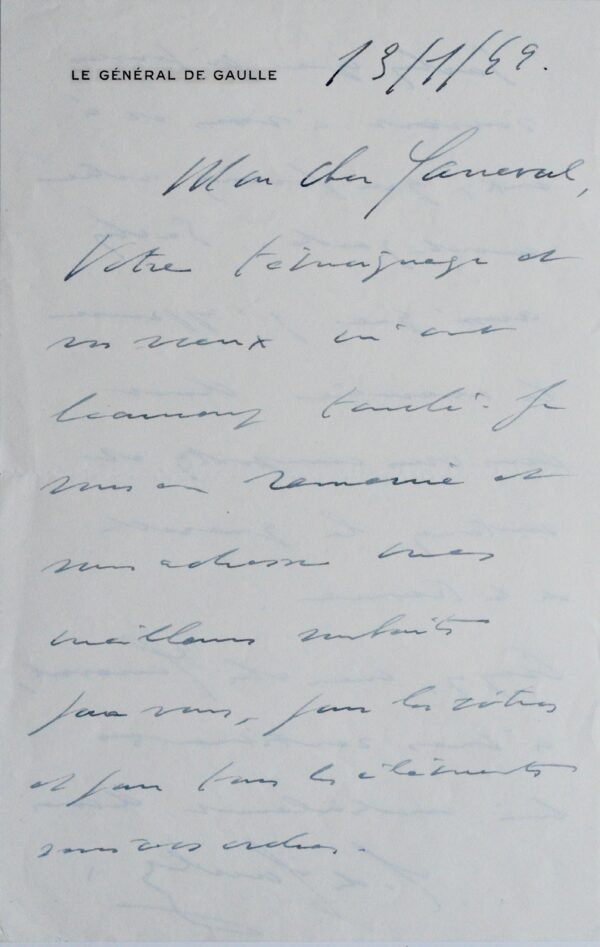 LE GÉNÉRAL DE GAULLE
13/1/49.
Mon cher
Votre témoignage et
vos vœux m'ont
beaucoup touché. Je
vous en remercie et
vous adresse mes
meilleurs souhaits
pour vous, pour les vôtres
et pour tous les éléments
sous vos ordres.